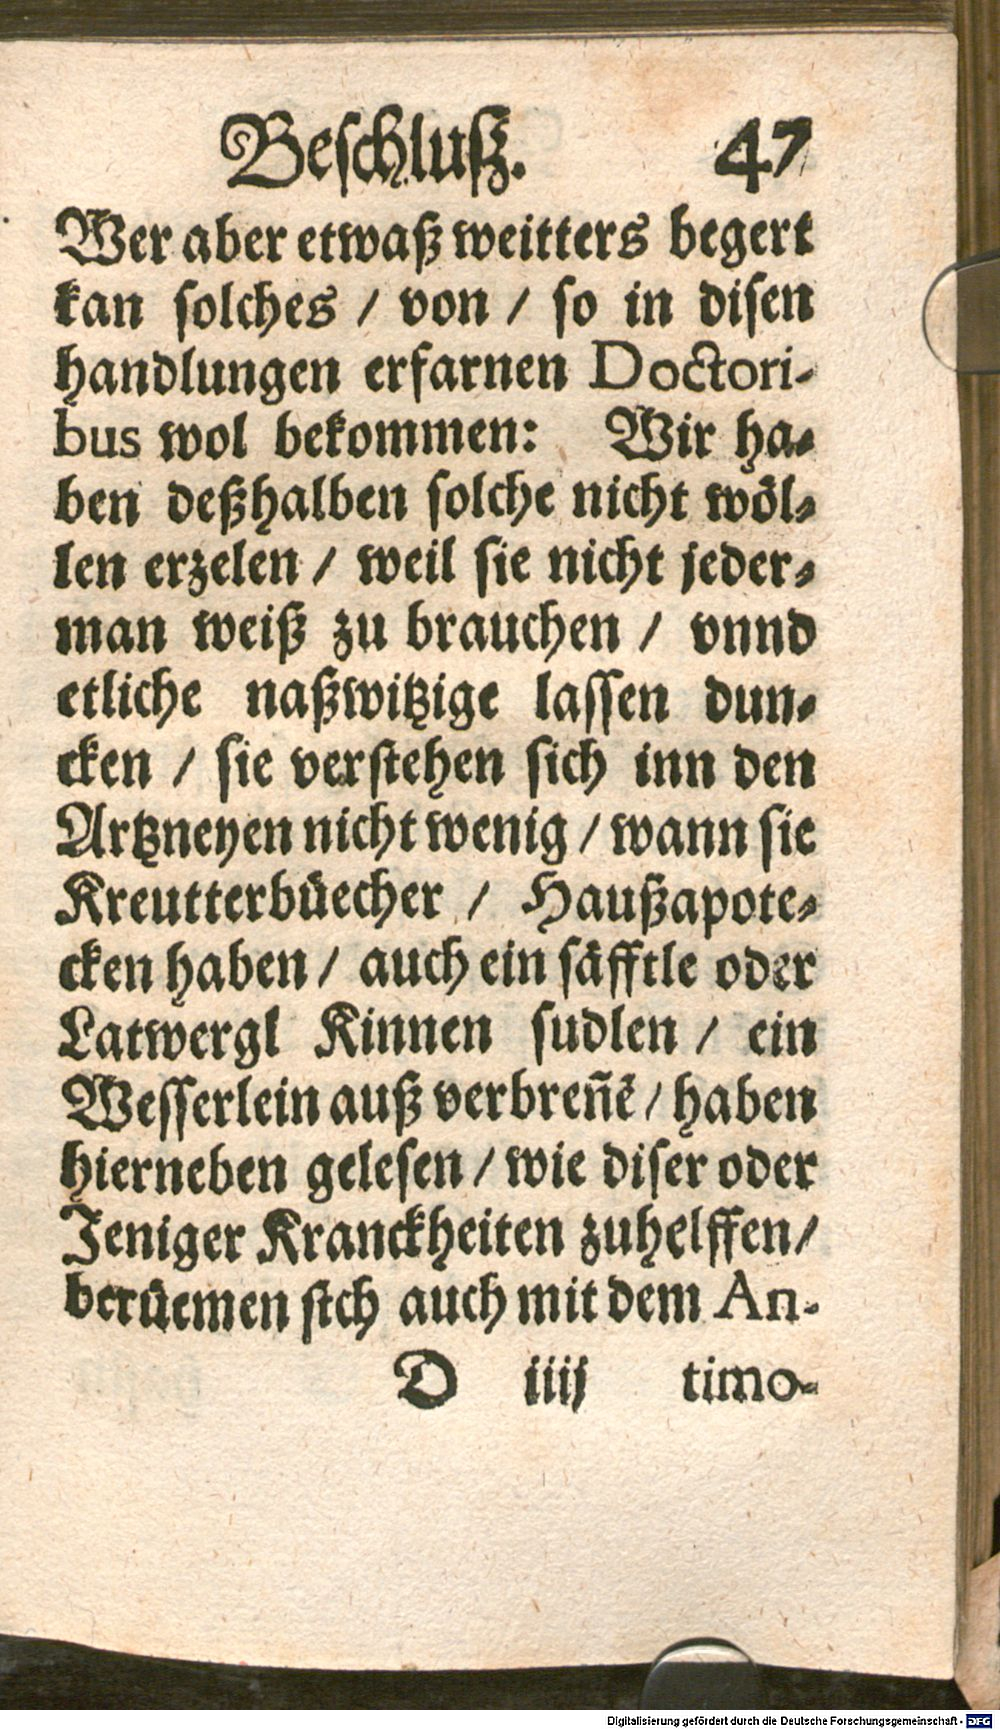 Beschluß. 47
Wer aber etwaß weitters begert
kan solches / von / so in disen
handlungen erfarnen Doctori-
bus wol bekommen: Wir ha-
ben deßhalben solche nicht wöl-
len erzelen / weil sie nicht jeder-
man weiß zu brauchen / vnnd
etliche naßwitzige lassen dun-
cken / sie verstehen sich inn den
Artzneyen nicht wenig / wann sie
Kreutterbüecher / Haußapote-
cken haben / auch ein säfftle oder
Latwergl Kinnen sudlen / ein
Wesserlein auß verbreñē / haben
hierneben gelesen / wie diser oder
Jeniger Kranckheiten zuhelffen /
berüemen sich auch mit dem An-
D iiij timo-
Digitalisierung gefördert durch die Deutsche Forschungsgemeinschaft - DFG